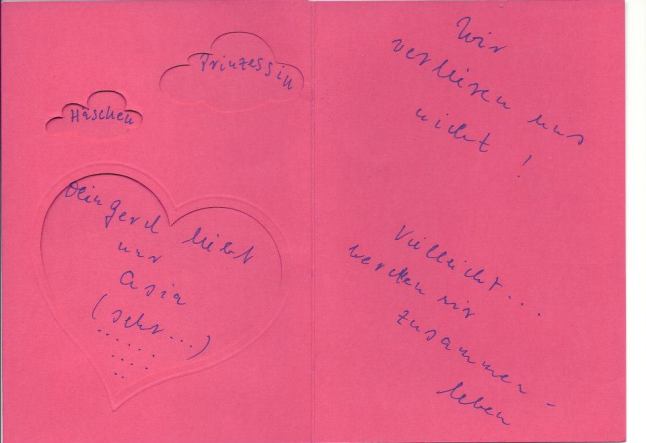 Prinzessin
Häschen
Dein Gerd liebt
nur
Asia
(sehr...)
Wir
verlieren uns
nicht!
Vielleicht...
werden wir
zusammen-
leben